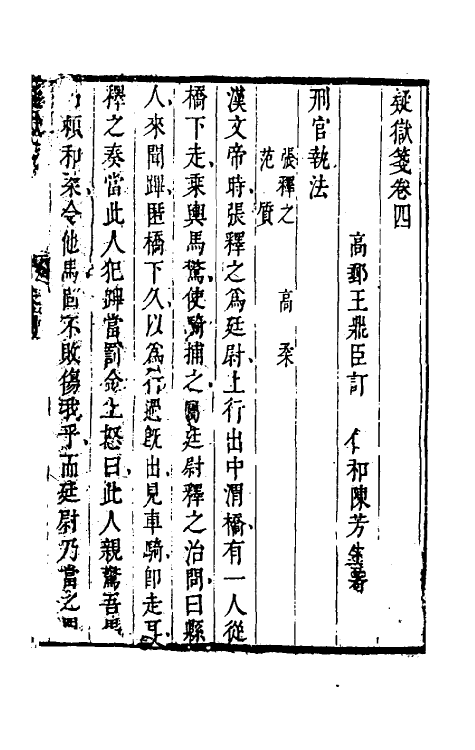 疑獄箋卷四
高郵王飛臣訂　仁和陳芳生著
刑官執法
張釋之　高柔
范質
漢文帝時張釋之爲廷尉上行出中渭橋有一人從
橋下走乘輿馬驚使騎捕之屬廷尉釋之治問曰縣
人來聞蹕匿橋下久以爲行過既出見車騎即走耳
釋之奏當此人犯蹕當罰金上怒曰此人親驚吾馬
馬賴和柔令他馬固不敗傷我乎而廷尉乃當之罰